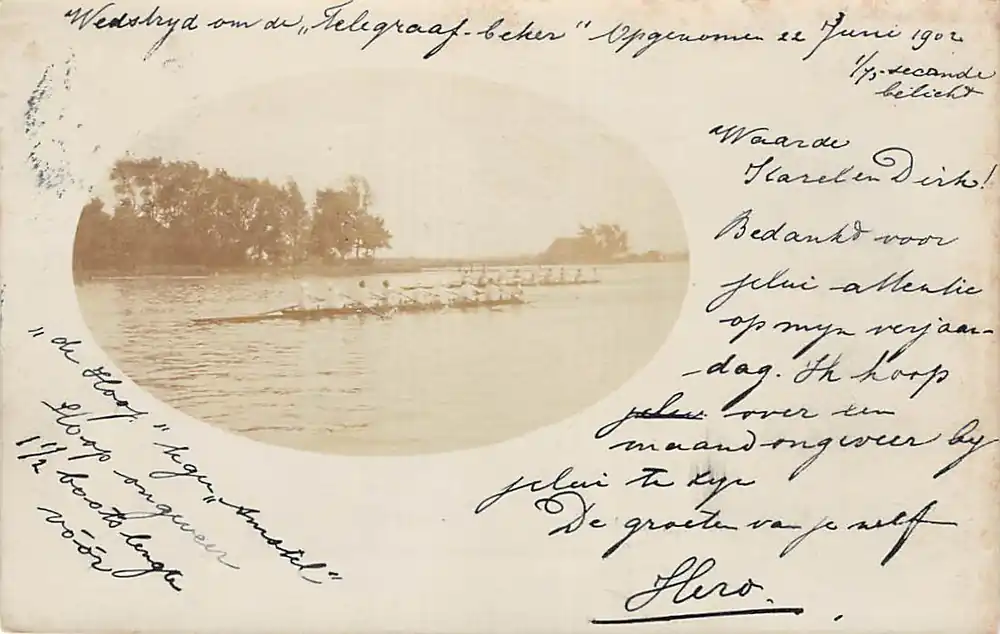 Wedstryd om de „Telegraaf-beker" Opgenomen 22 Juni 1902
1/75 secande
belicht
Waarde
Karel en Dirk!
Bedankt voor
jelui attentie
op myn verjaar-
dag. Ik hoop
jelui over een
maand ongeveer by
jelui te zyn
De groeten van je neef
Hero.
"de Hoop" tegen „Amstel"
Hoop ongeveer
1 1/2 boots lengte
vóór